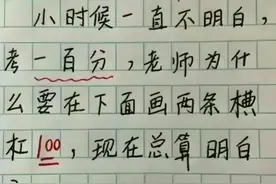 小时候一直不明白，
考一百分，老师为什
么要在下面画两条横
杠100，现在总算明白